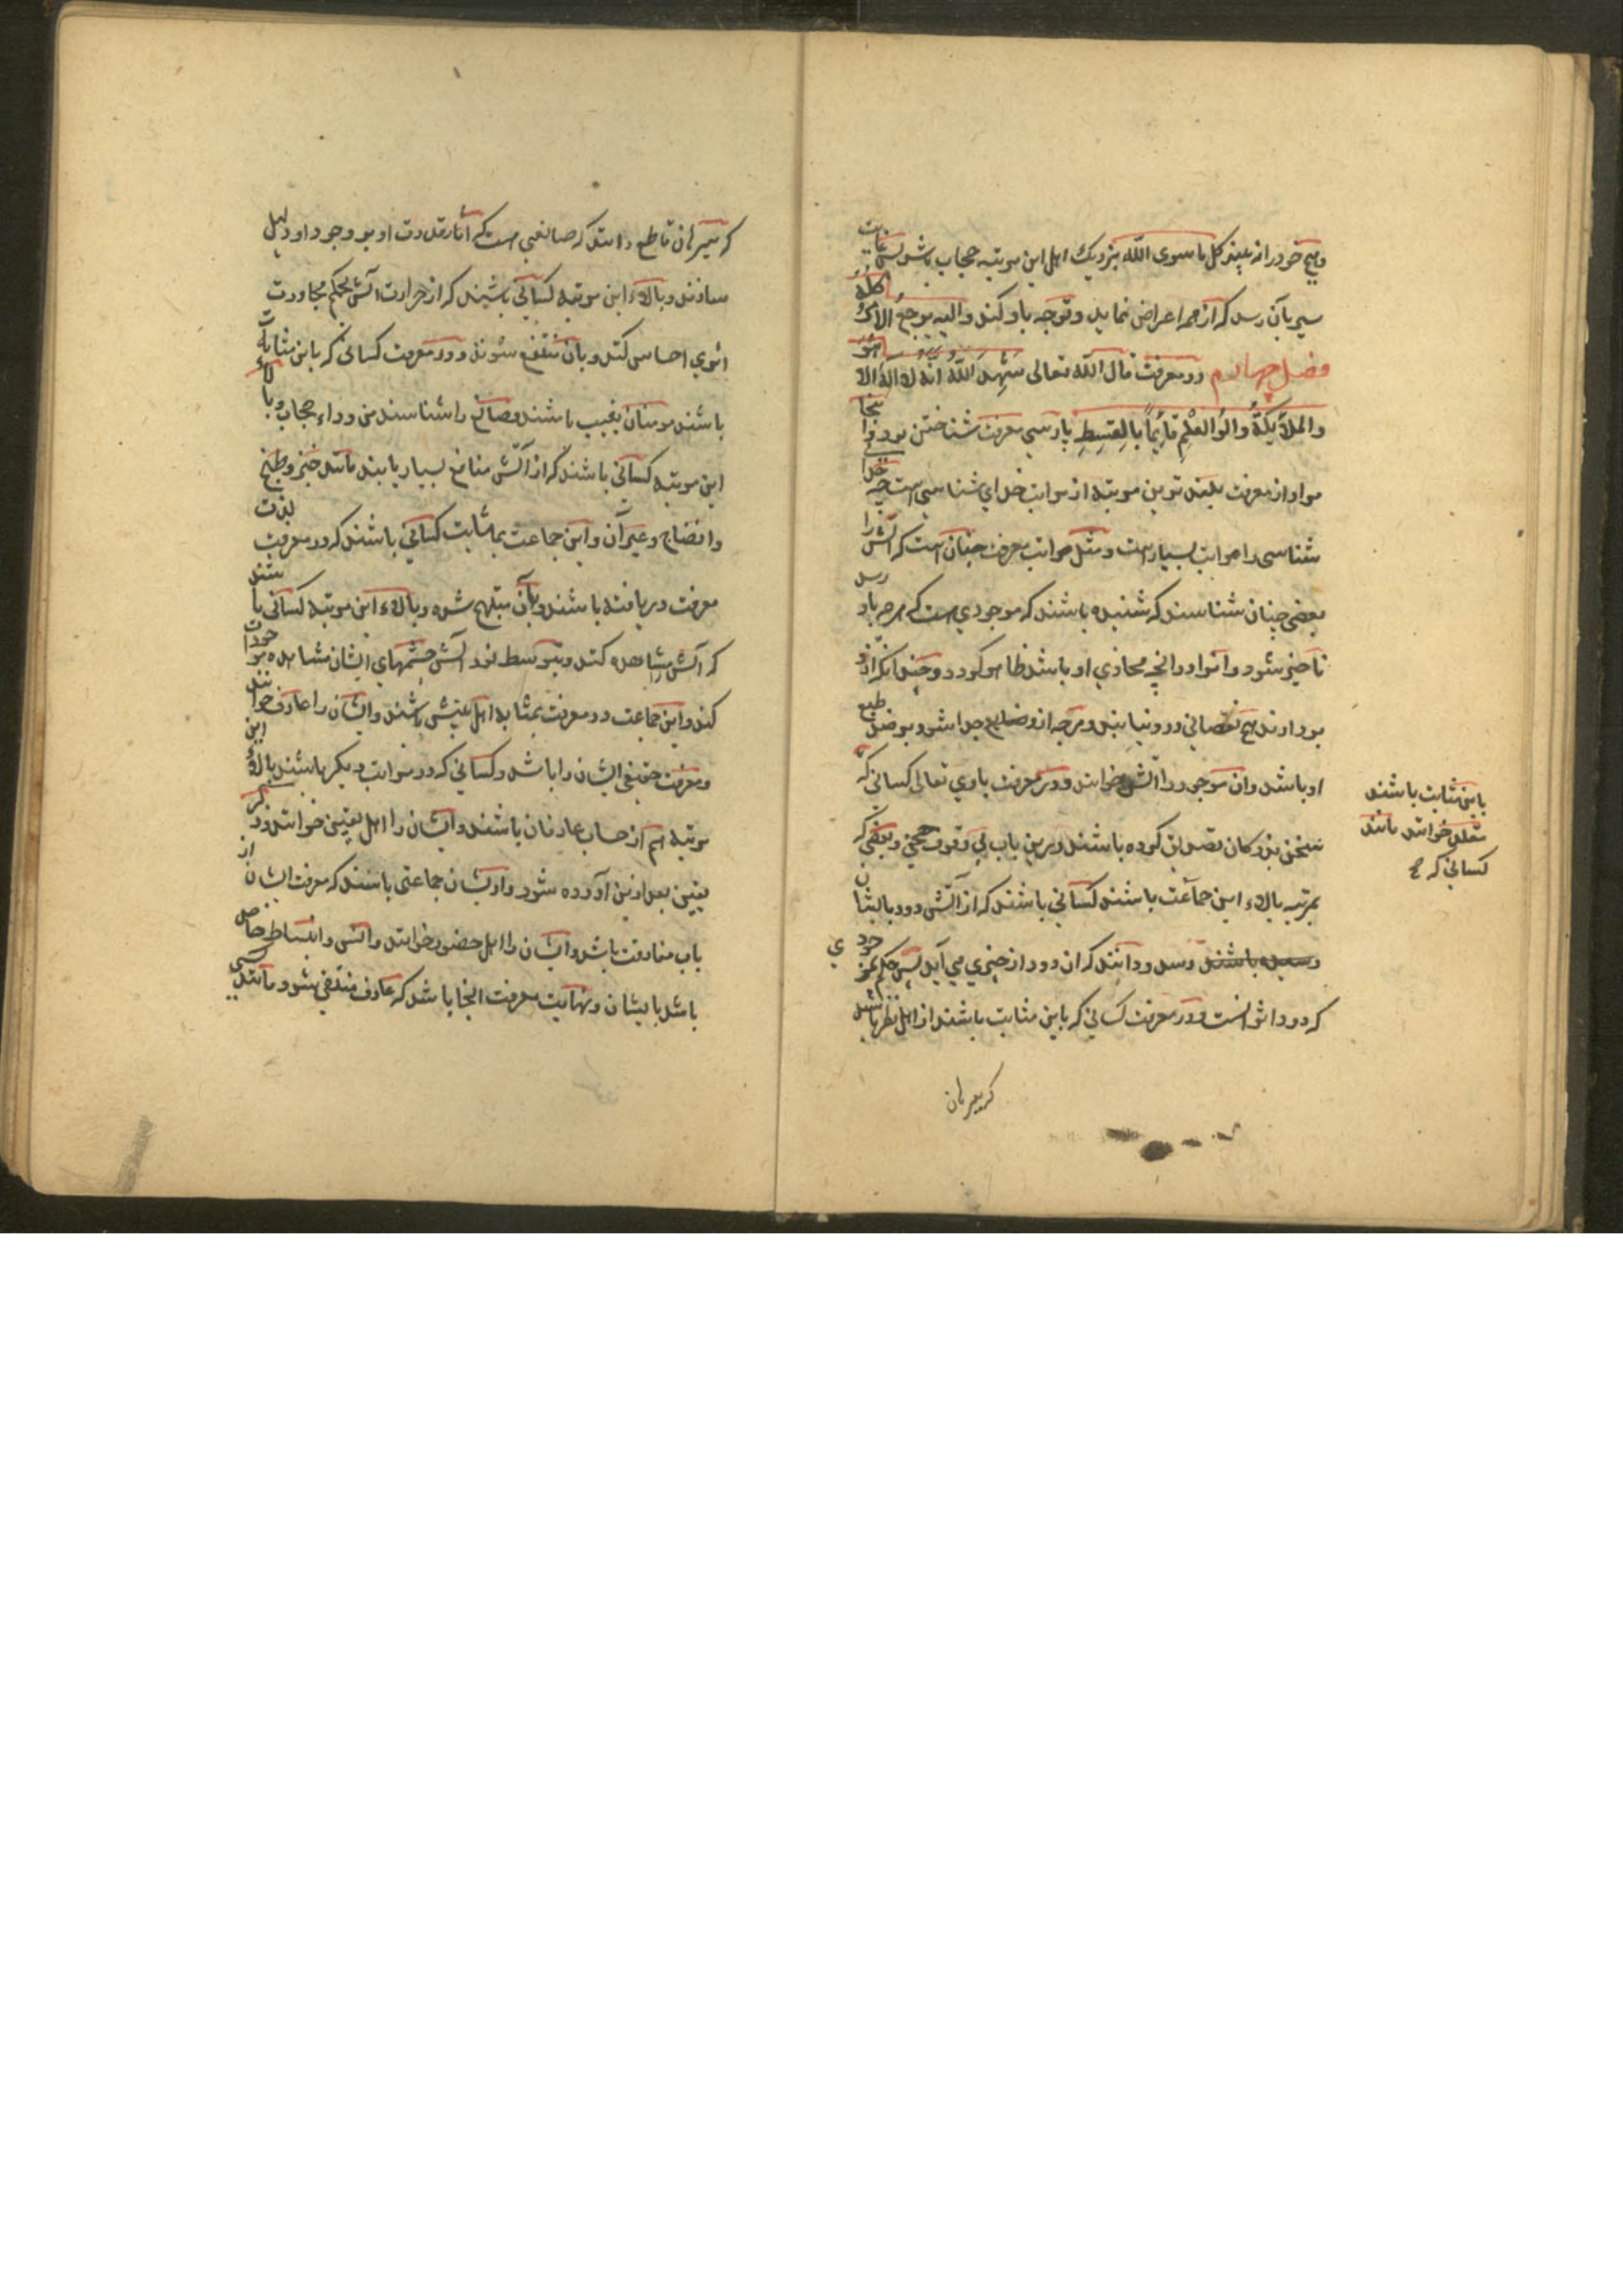 وهیچ خود را نه بیند کل ما سوی الله بنزدیک اهل این مرتبه حجاب باشد پس غایت
سیر بآن رسد که از همه اعراض نماید و توجه باو کند والیه یرجع الامر کله
فصل چهارم در معرفت قال الله تعالی شَهِدَ اللّه انّه لا اله الا هُوَ
والملائِکَةُ واُلُوا العِلْمِ قائِماً بالقِسِطِ پارسی معرفت شناختن بود و اینجا
مراد از معرفت بلندترین مرتبه از مراتب خدای شناسی است چه خدا
شناسی را مراتب بسیارست و مثل مراتب معرفت چنان است که آتش را
بعضی چنان شناسند که شنیده باشند که موجودی هست که هر چه باو رسد
ناچیز شود و اثر او در آنچه محاذی او باشد ظاهر گردد و چندانکه ازو
بردارند هیچ نقصانی درو نیاید و هرچه ازو جدا شود بر ضد طبع
او باشد وان موجود را آتش خوانند و در معرفت باری تعالی کسانی که
باین مثابت باشند
مقلد خوانند مانند
کسانی که
سخن بزرکان تصدیق کرده باشند درین باب بی وقوف حجتی و بعضی که
بمرتبه بالاء این جماعت باشند کسانی باشند که از آتش دود بایشان
رسد و دانند که ان دود از چیزی می آید پس حکم کنند بموجودی
که دود اثر اوست و در معرفت کسانی که باین مثابت باشند از اهل نظر باشند
که ببرهان
که ببرهان قاطع دانند که صانعی هست که آثار قدرت او بر وجود او دلیل
سازند و بالاء این مرتبه کسانی باشند که از حرارت آتش بحکم مجاورت
اثری احساس کنند و بآن منتفع شوند و در معرفت کسانی که باین مثابه
باشند مومنان بغیب باشند و صانع را شناسند من وراء حجاب و بالاء
این مرتبه کسانی باشند که از آتش منافع بسیار یابند مانند خبز و طبخ
وانضاج و غیر آن و این جماعت بمثابت کسانی باشند که در معرفت لذت
معرفت دریافته باشند و بآن مبتهج شده و بالاء این مرتبه کسانی باشند
که آتش را مشاهده کنند و بتوسط نور آتش چشمهای ایشان مشاهده موجودات
کند و این جماعت در معرفت بمثابه اهل بینش باشند و ایشان را عارف خوانند
و معرفت حقیقی ایشان را باشد و کسانی که در مراتب دیگر باشند بالاء این
مرتبه هم از حساب عارفان باشند و ایشان را اهل یقین خوانند و ذکر
یقین بعد ازین آورده شود و از ایشان جماعتی باشند که معرفت ایشان از
باب معاینت باشد و ایشان را اهل حضور خوانند و انس و انبساط خاص
باشد بایشان و نهایت معرفت اینجا باشد که عارف منتفی شود مانند کسی